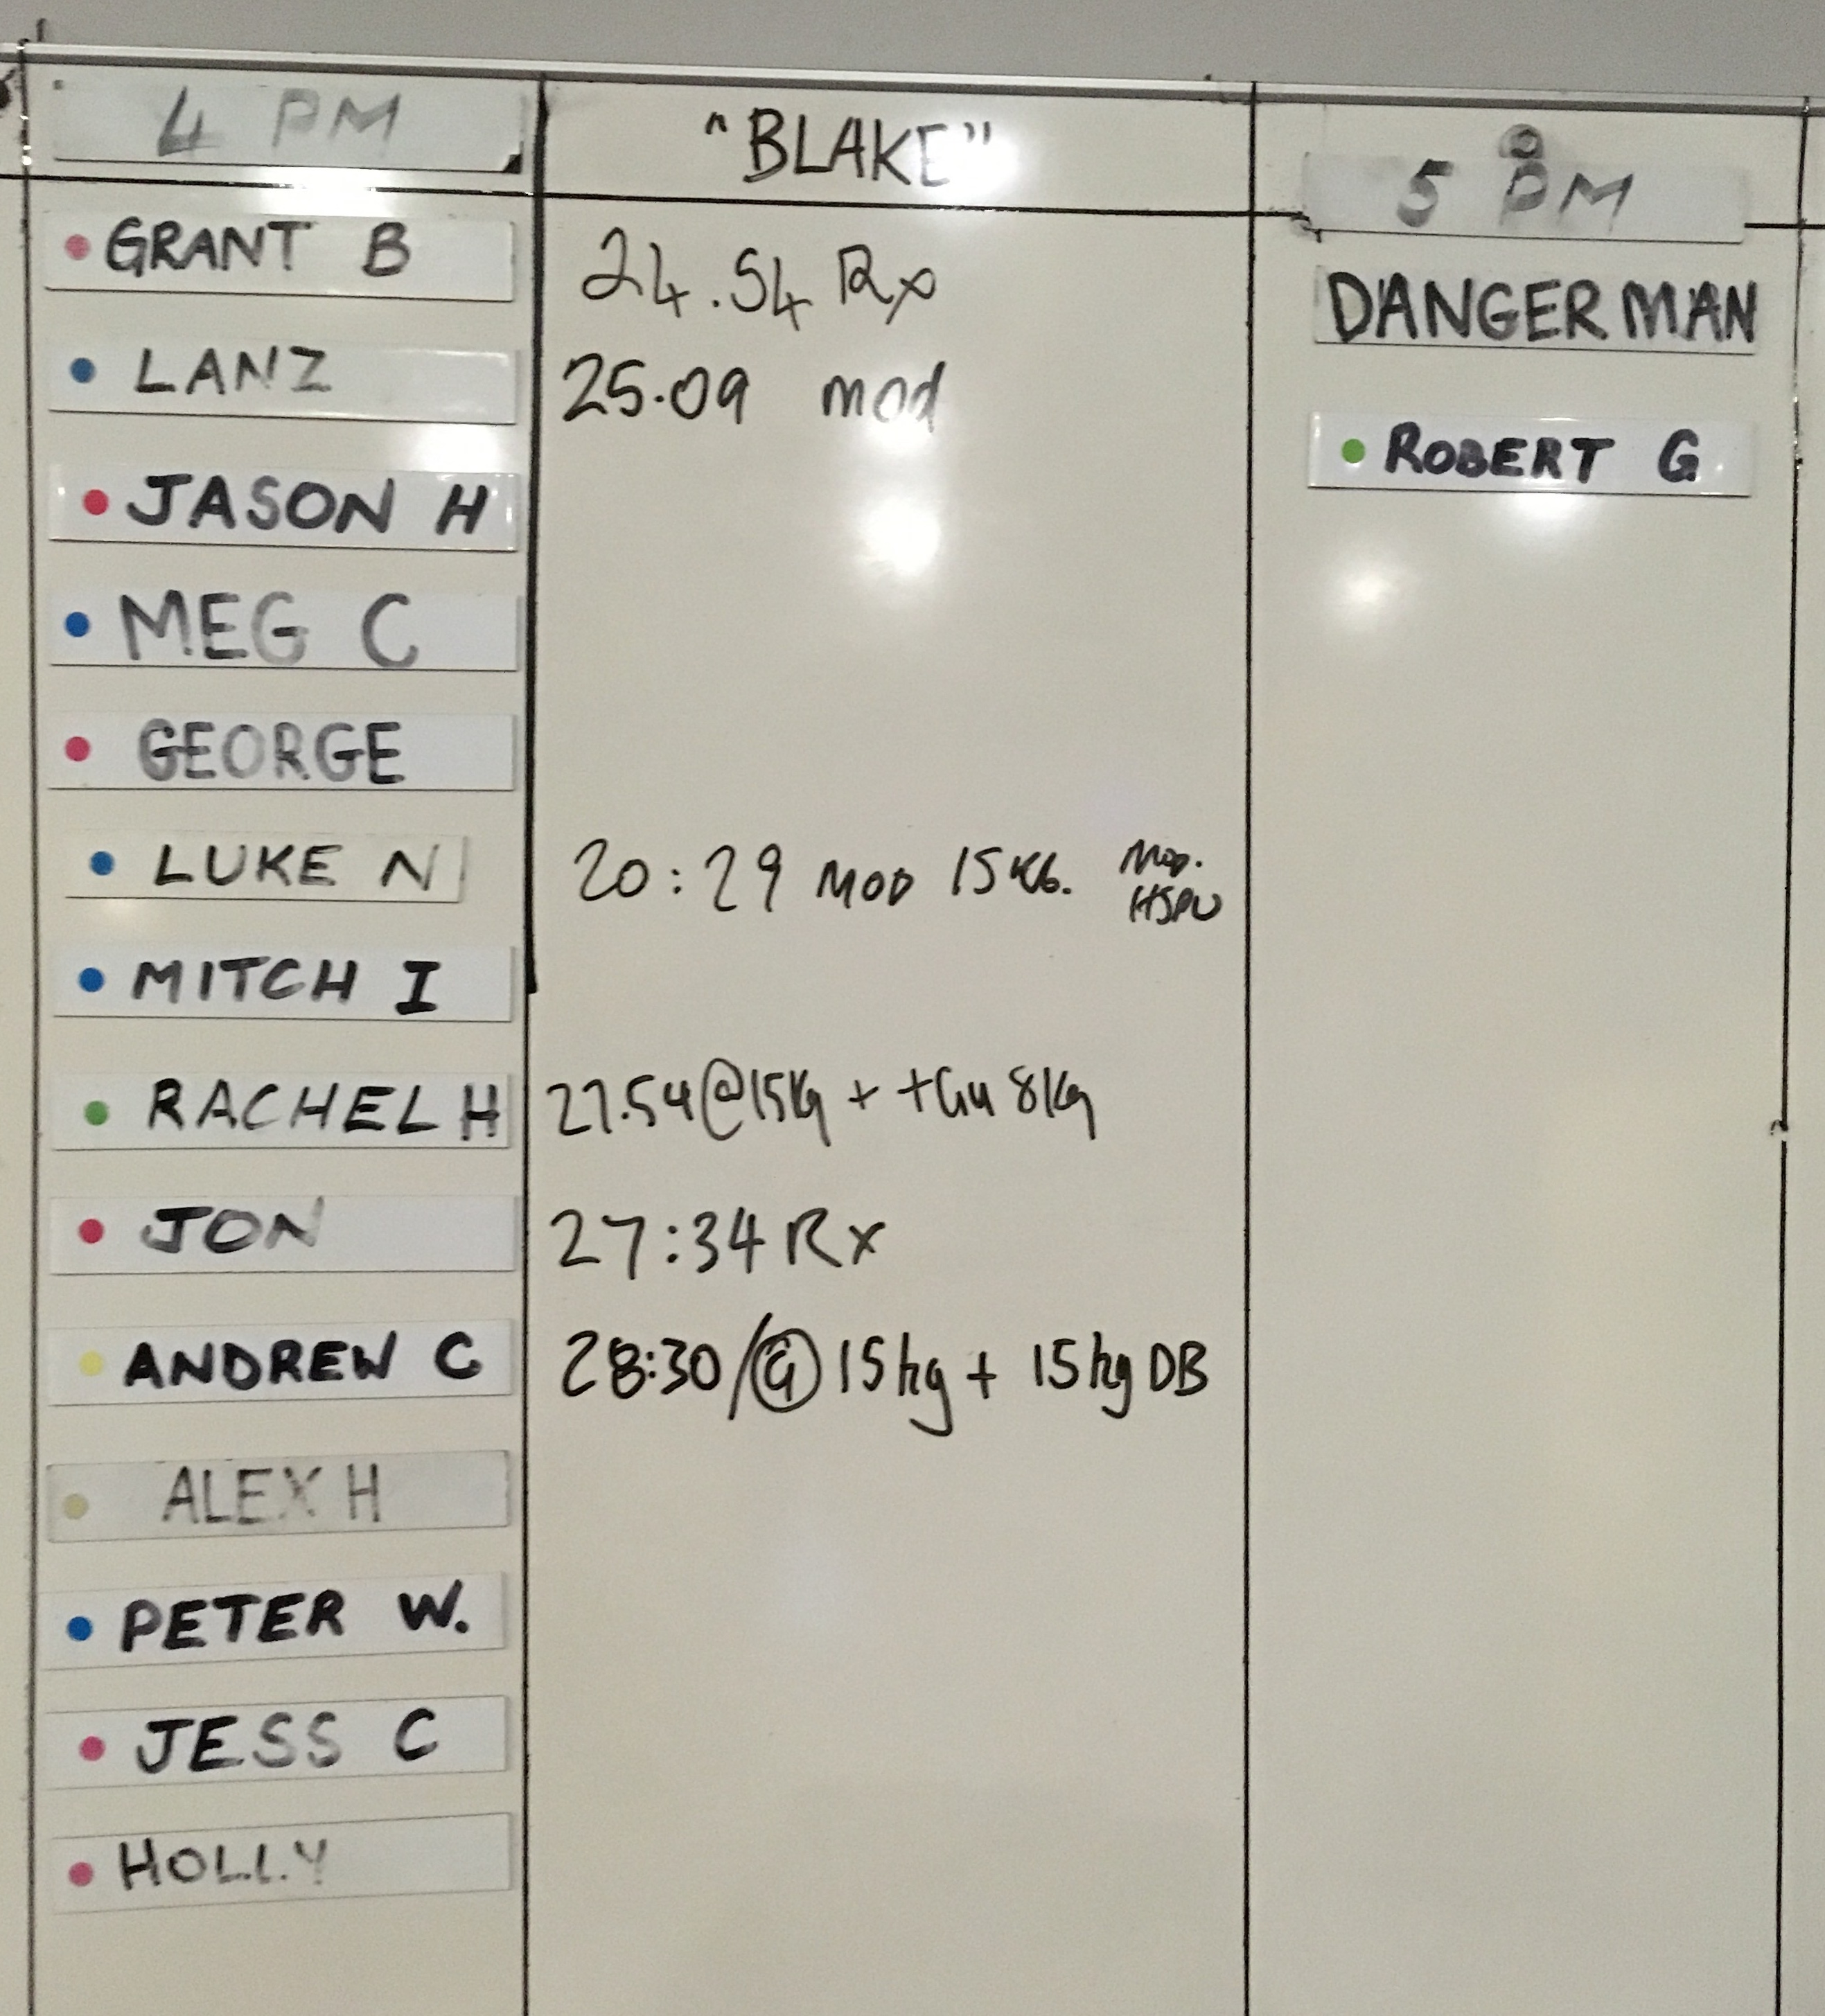 4 PM
"BLAKE"
5 PM
GRANT B
24.54 Rx
DANGERMAN
LANZ
25.09 mod
ROBERT G
JASON H
MEG C
GEORGE
LUKE N
20:29 MOD 15KG. MOD.
HSPU
MITCH I
RACHEL H
27.54 @ 15Kg + 8Kg
JON
27:34 Rx
ANDREW C
28:30/@ 15kg + 15kg DB
ALEX H
PETER W.
JESS C
HOLLY